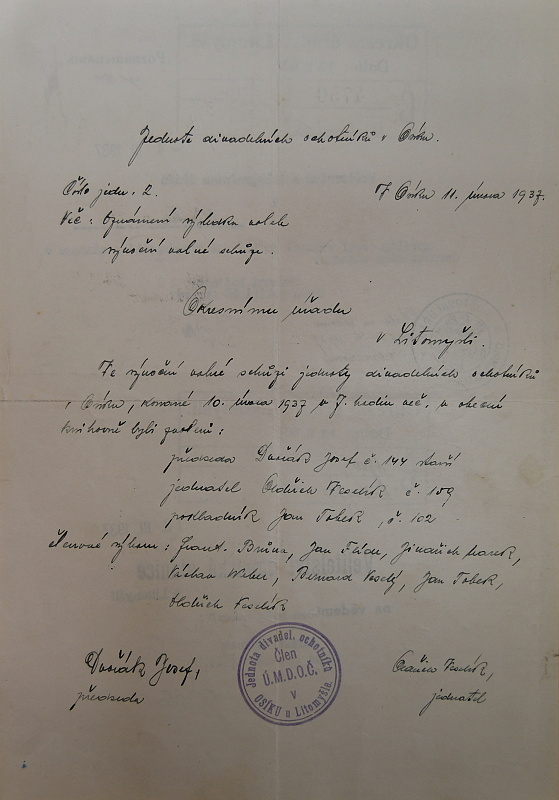 Jednota divadelních ochotníků v Osíku.
Číslo jedn. 2.
V Osíku 11. února 1937.
Věc: Oznámení výsledku voleb
výroční valné schůze.
Okresnímu úřadu
v Litomyšli.
Ve výroční valné schůzi jednoty divadelních ochotníků
v Osíku, konané 10. února 1937 v 7. hodin več. v obecní
knihovně byli zvoleni:
předseda Dvořák Josef č. 144 starší
jednatel Oldřich Feslík č. 109
pokladník Jan Tobek, č. 102
Členové výboru: Frant. Brůna, Jan Jinřich Marek,
Václav Weber, Bernard Veselý, Jan Tobek,
Oldřich
Dvořák Josef,
předseda
Jednota divadel. ochotníků
Člen
Ú.M.D.O.Č.
v
OSÍKU u Litomyšle
Oldřich
jednatel